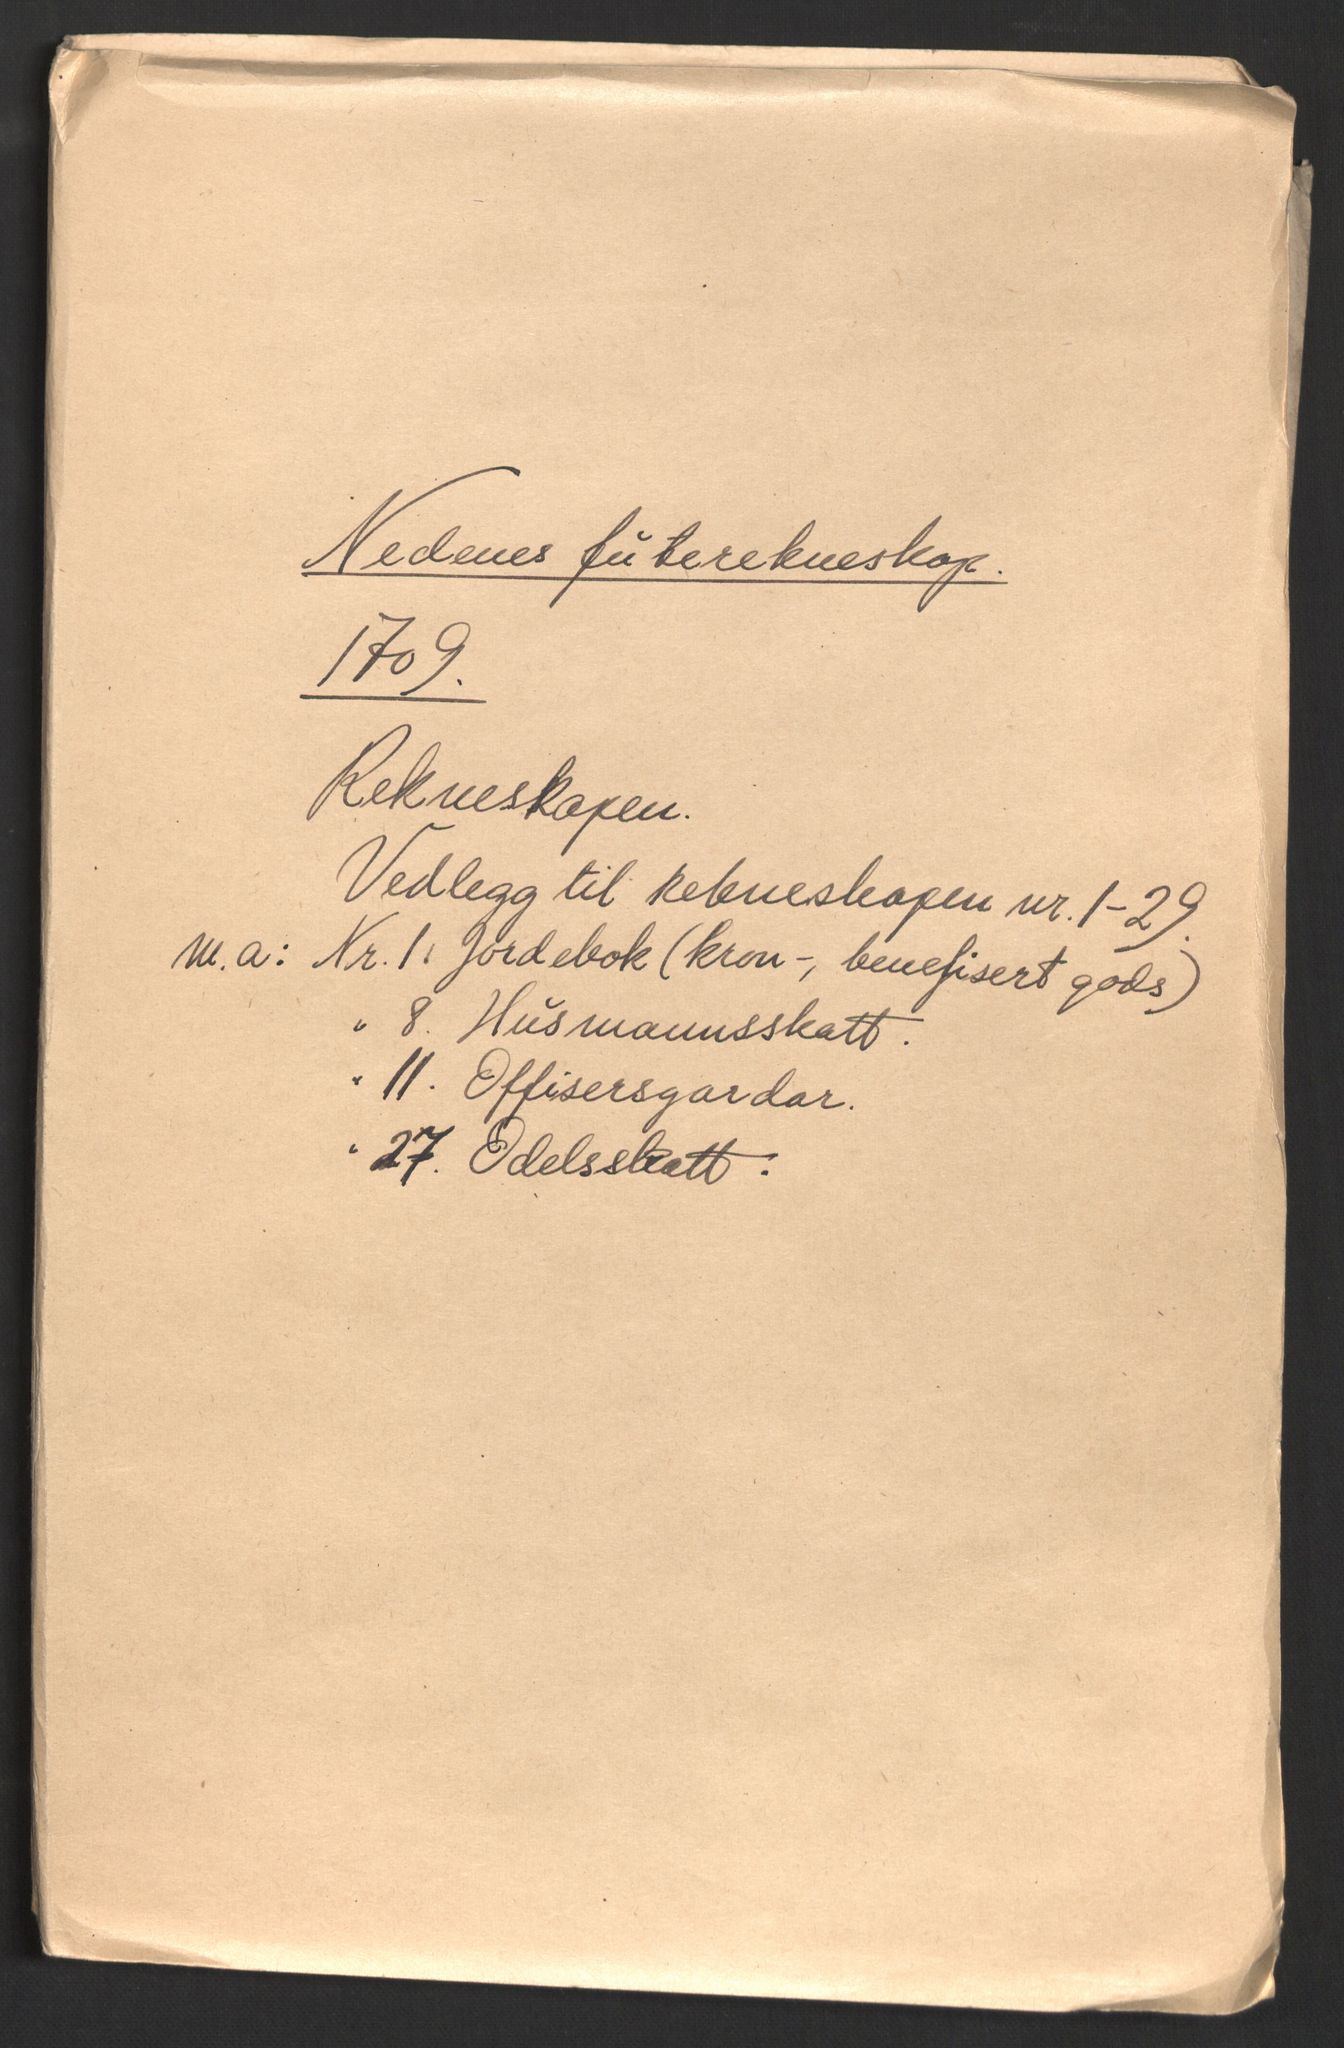 Nedenes futerekneskap.
1709.
Rekneskapen.
Vedlegg til rekneskapen nr. 1-29.
m.a: Nr. 1. Jordebok (kron-, benefisert gods)
" 8. Husmannsskatt.
" 11. Offisersgardar.
" 27. Odelsskatt.